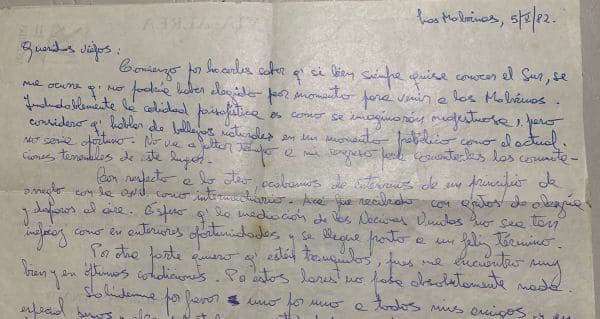 Las Malvinas, 5/V/82.
Queridos viejos:
Comienzo por hacerles saber q' si bien siempre quise conocer el Sur, se
me ocurre q' no podía haber elegido peor momento para venir a las Malvinas.
Indudablemente la calidad paisajística es como se imaginarán majestuosa, pero
considero q' hablar de bellezas naturales en un momento prebélico como el actual
no sería oportuno. No va a faltar tiempo a mi regreso para comentarles las connota-
ciones terrenales de este lugar.
Con respecto a lo otro, acabamos de enterarnos de un principio de
arreglo con la ONU como intermediario. Acá fue recibido con gritos de alegría
y disparos al aire. Espero q' la mediación de las Naciones Unidas no sea tan
ineficaz como en anteriores oportunidades y se llegue pronto a un feliz término.
Por otra parte quiero q' estén tranquilos, pues me encuentro muy
bien y en óptimas condiciones. Por estos lares no pasa absolutamente nada.
Salúdenme por favor uno por uno a todos mis amigos, y en
especial